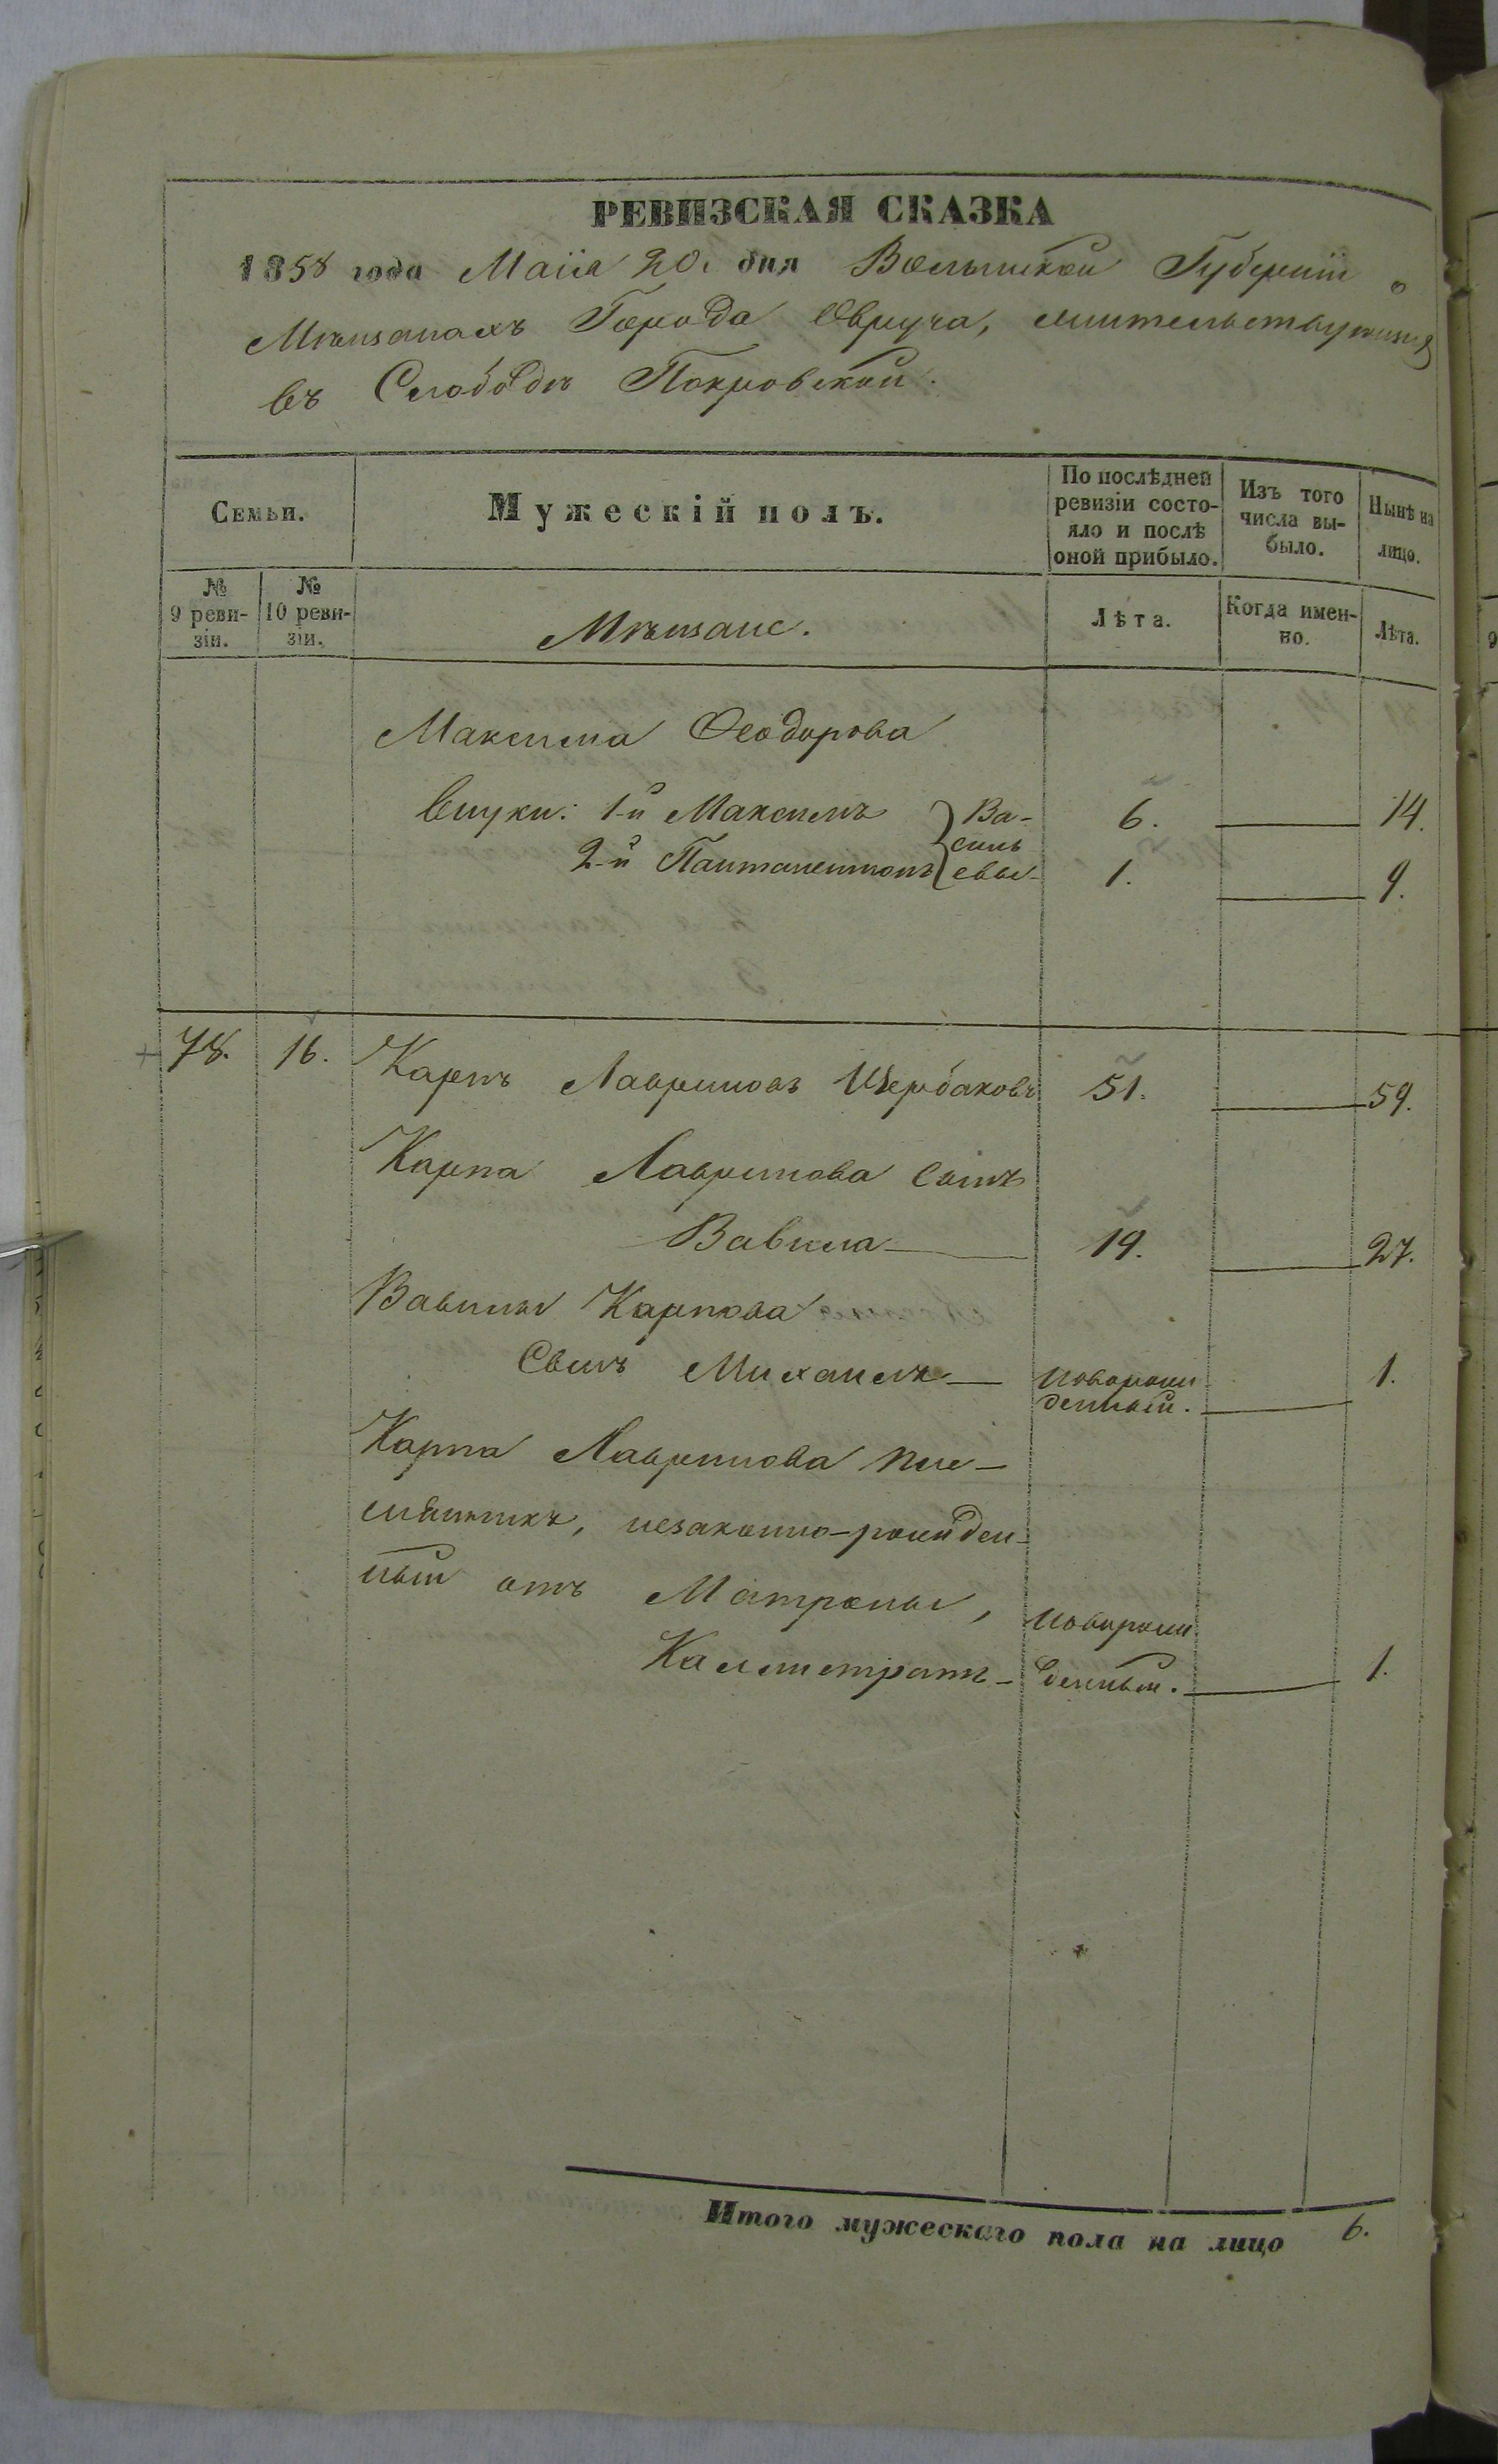 РЕВИЗСКАЯ СКАЗКА
1858 года Маiя 20. дня Волынской Губернiи о
Мѣщанахъ Города Овруча, жительствующихъ
въ Слободѣ Покровской.
Семьи.
Мужескiй полъ.
По послѣдней
ревизiи состо-
яло и послѣ
оной прибыло.
Изъ того
числа вы-
было.
Нынѣ на
лицо.
№
9 реви-
зiи.
№
10 реви-
зiи.
Мѣщане.
Лѣта.
Когда имен-
но.
Лѣта.
Максима Ѳеодорова
Внуки: 1-й Максимъ } Ва- 6. 14.
силь
2-й Пантелеимонъ евы 1. 9.
78. 16. Карпъ Лавриновъ Щербаковъ 51. 59.
Карпа Лавринова сынъ
Вавила 19. 27.
Вавилы Карпова
Сынъ Михаилъ новорож 1.
денный.
Карпа Лавринова пле-
мянникъ, незаконно-рожден-
ный отъ Матроны, новорож.
Калистратъ денный. 1.
Итого мужескаго пола на лицо 6.